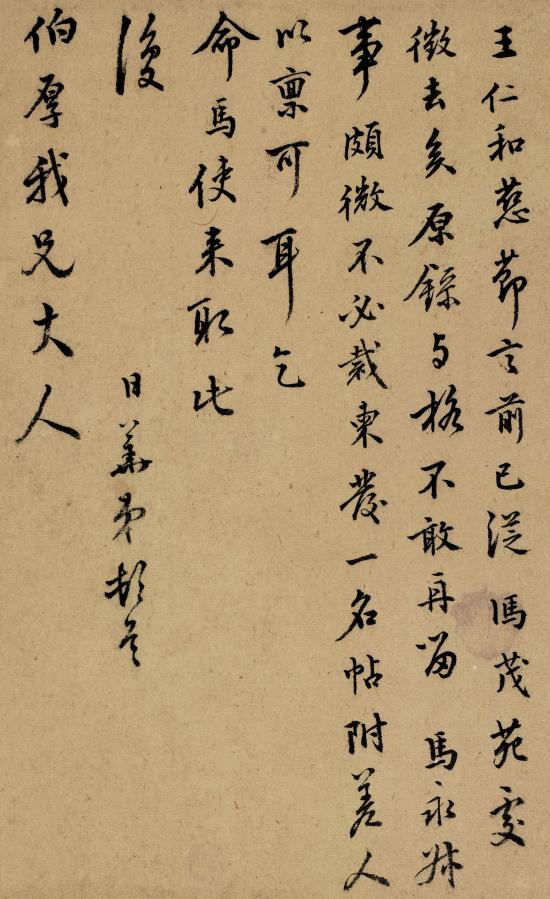 王仁和慈節云前已從馮茂苑處
徵去矣原錄与格不敢再留 馬永
事頗微不必裁柬發一名帖附差人
以稟可耳乞
命馬使来取此
復
日華弟頓首
伯厚我兄大人